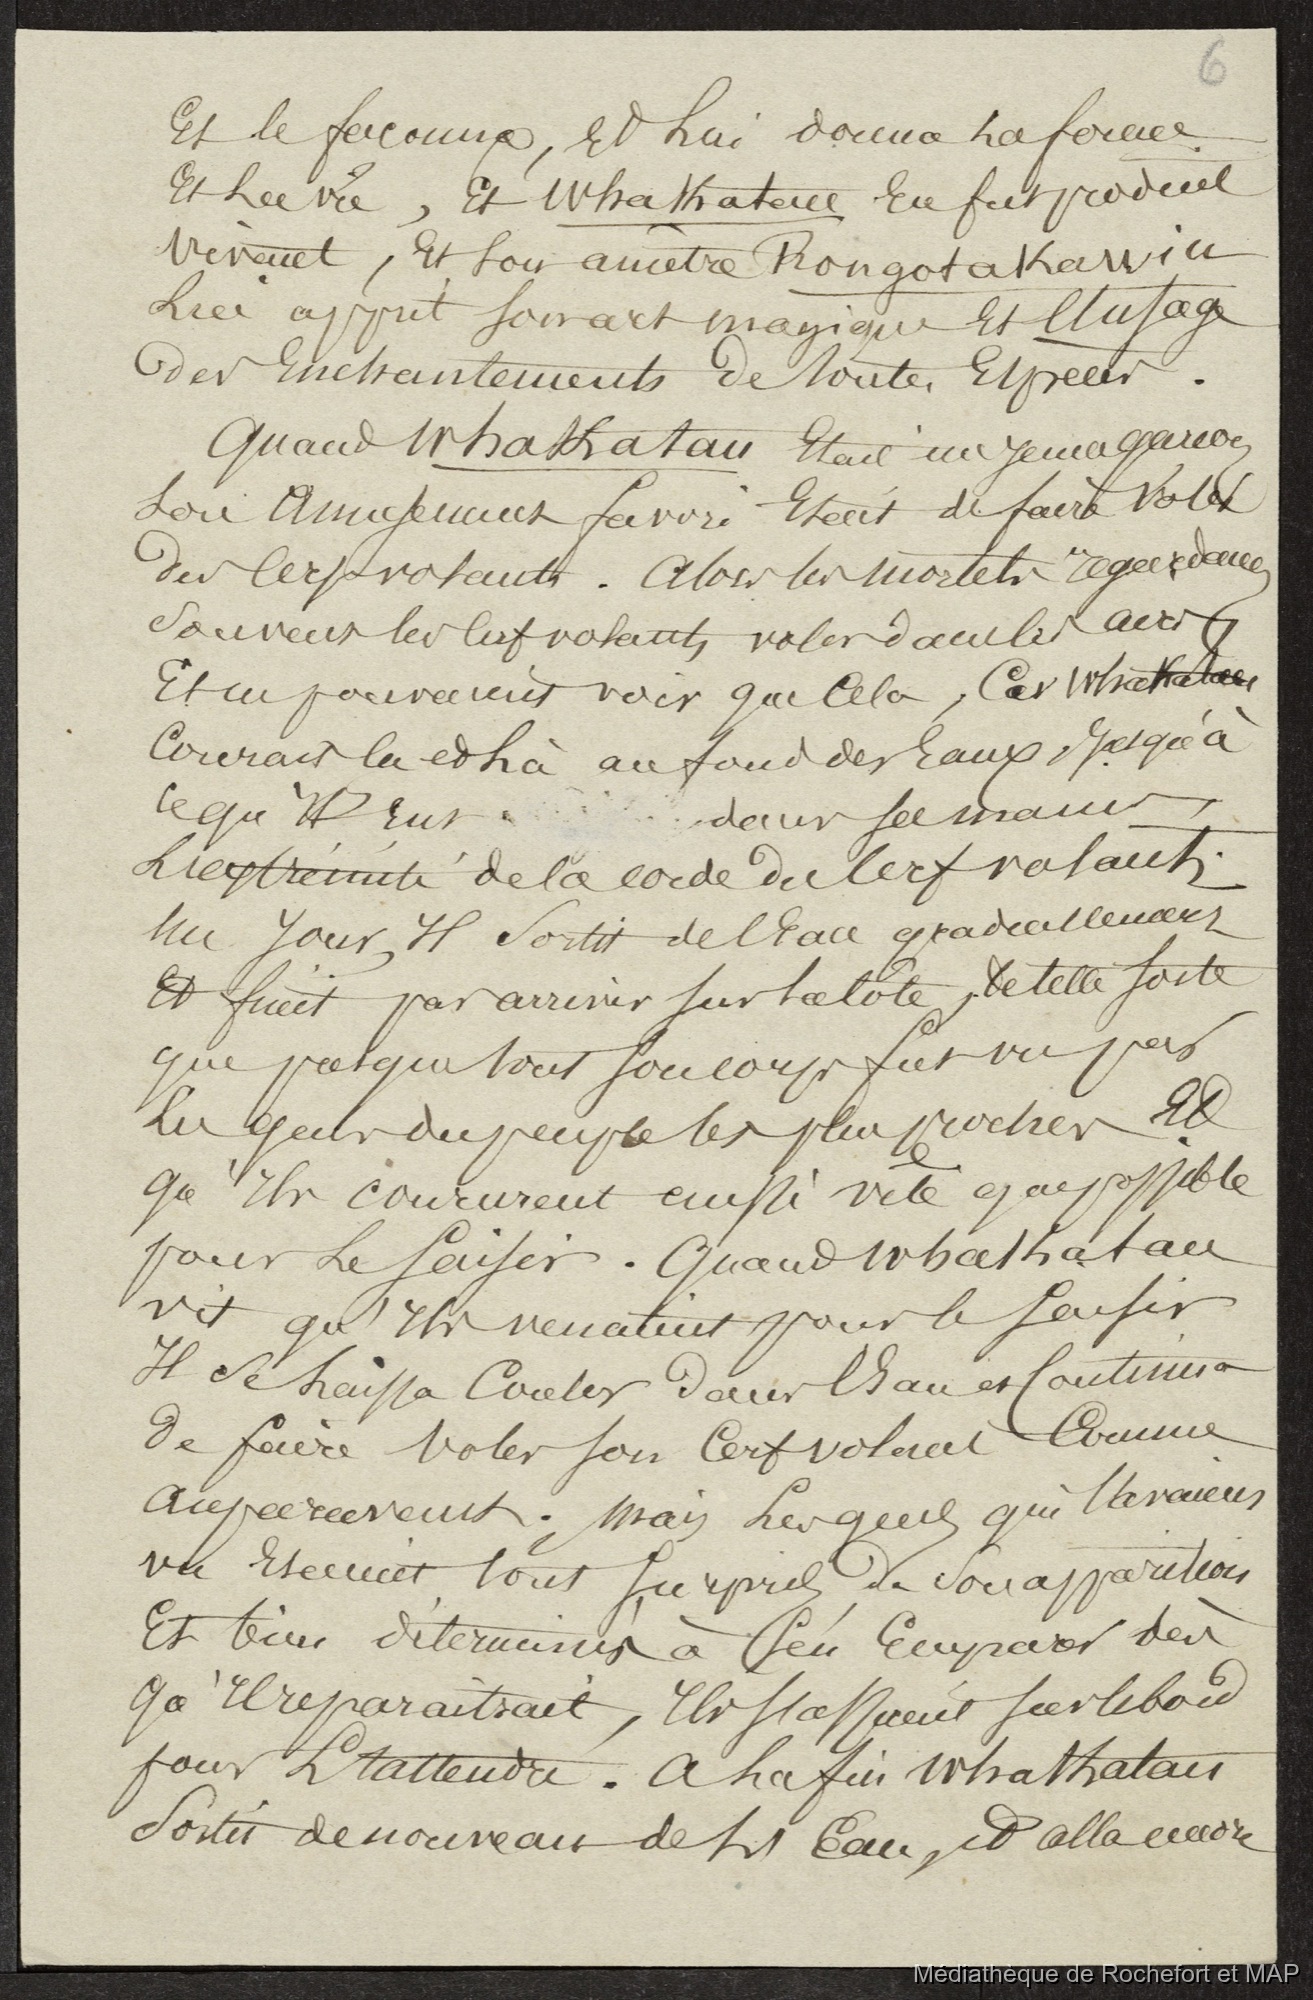 6
Et le façonna, et lui donna la forme
Et la vie, Et Whakatau En fut produit
vivant, Et son ancêtre Rongotakawiu
Lui apprit son art magique Et l'usage
des Enchantements de toutes Espèces.
Quand Whakatau Etait un jeune garçon
son Amusement favori Etait de faire voler
des cerfs volants. Alors les mortels regardaient
souvent les cerfs volants voler dans les airs
Et ne pouvaient voir que cela, Car Whakatau
Courait la et là au fond des Eaux, jusqu'à
ce qu'Il Eut dans sa main,
L'extrémité de la corde du Cerf volant.
Un jour, Il sortit de l'Eau graduellement
Et finit par arriver sur la côte, de telle sorte
que presque tout son corps fut vu par
Les gens du peuple les plus proches Et
qu'Ils coururent aussi vite que possible
pour Le saisir. Quand Whakatau
vit qu'Ils venaient pour le saisir
Il se laissa Couler dans l'Eau et Continua
de faire voler son Cerf volant Comme
Auparavant. Mais Les gens qui l'avaient
vu Etaient tout surpris de son apparition
Et bien déterminés à s'en Emparer dès
qu'Il reparaitrait, Ils s'assirent sur le bord
pour L'attendre. A la fin Whakatau
Sortit de nouveau de Eau, et alla encore
Médiathèque de Rochefort et MAP